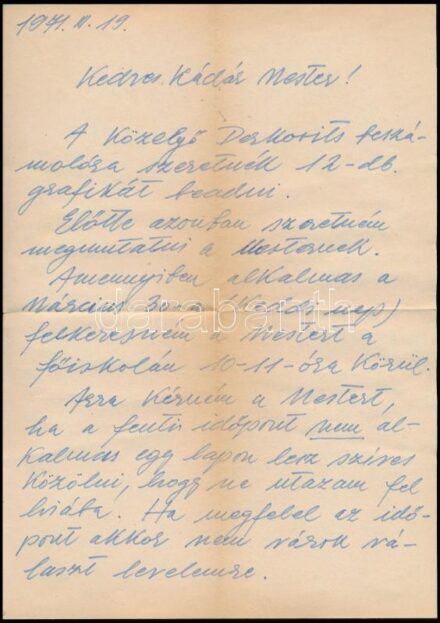 1971. III. 19.
Kedves Kádár Mester!
A Közelgő Derkovits beszá-
molóra szeretnék 12-db.
grafikát beadni.
Előtte azonban szeretném
megmutatni a Mesternek.
Amennyiben alkalmas a
Március 30-a (Kedd nap)
felkeresném a Mestert a
főiskolán 10-11-óra Körül.
Arra Kérném a Mestert,
ha a fenti időpont nem al-
kalmas egy lapon lesz szíves
Közölni, hogy ne utazam fel
hiába. Ha megfelel az idő-
pont akkor nem várok vá-
laszt levelemre.
darabanth